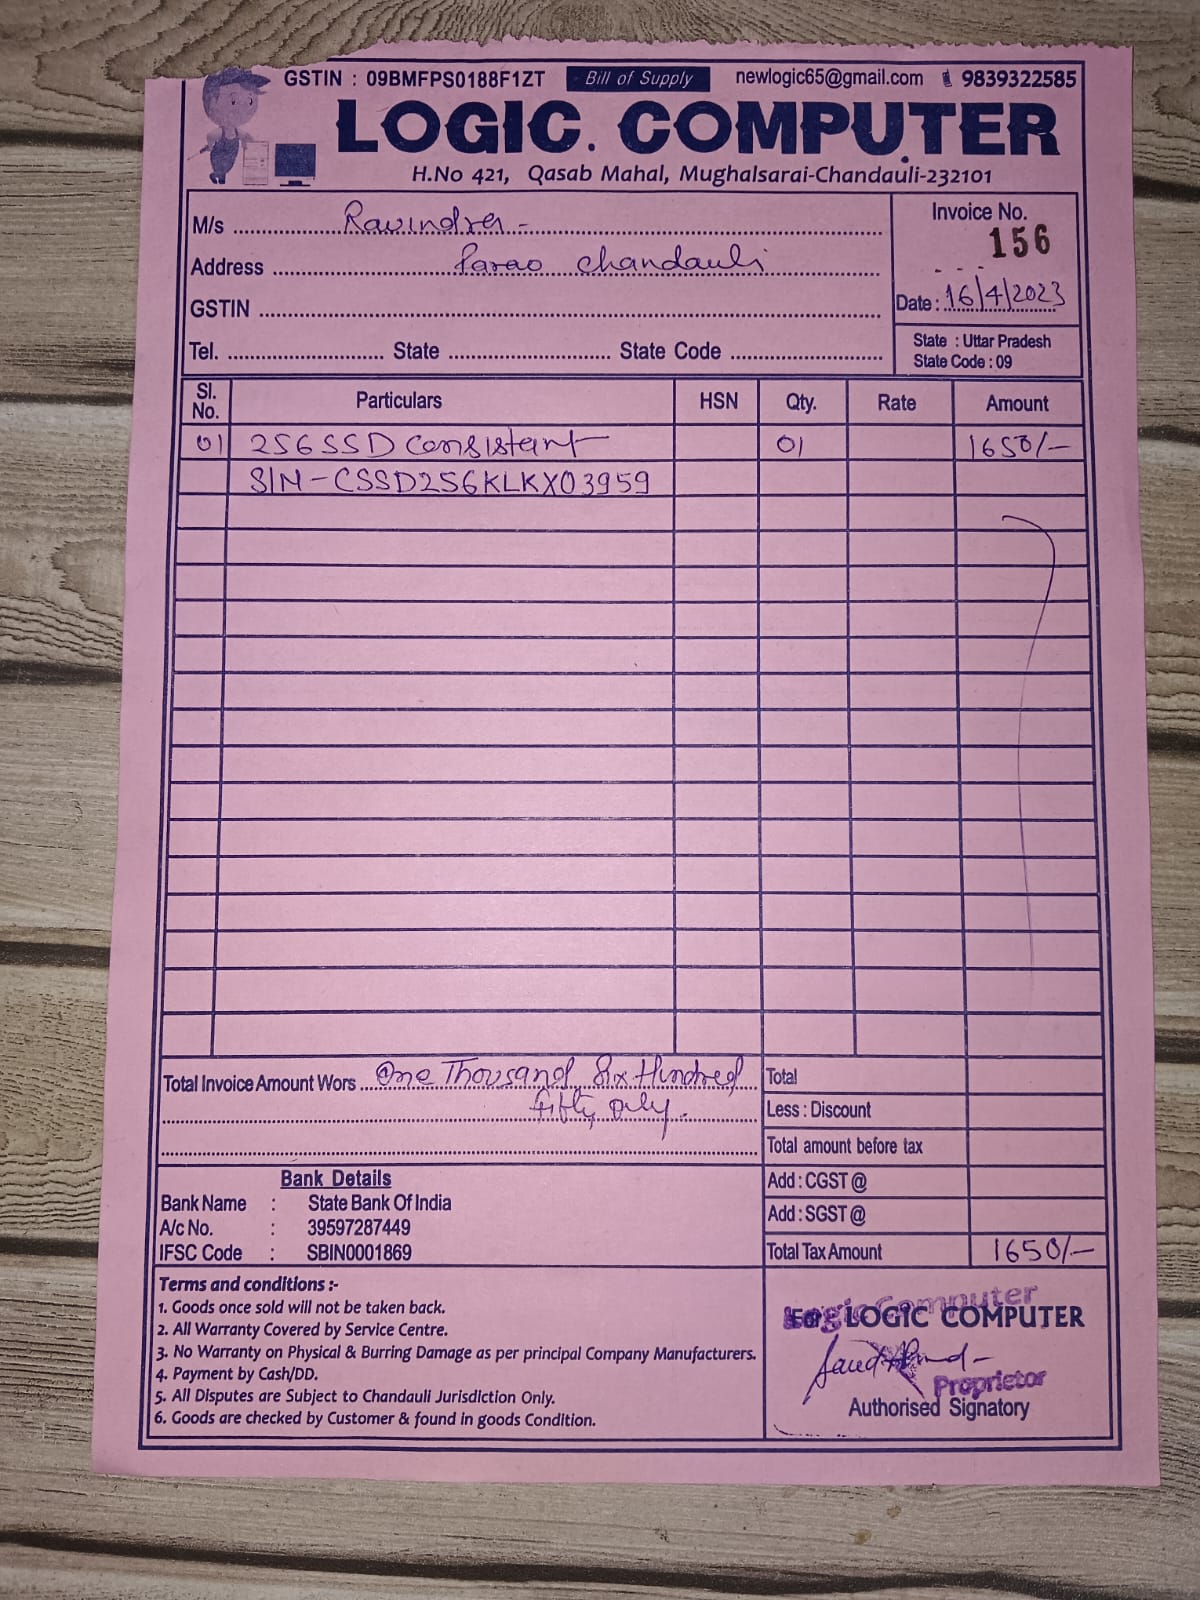 GSTIN : 09BMFPS0188F1ZT Bill of Supply newlogic65@gmail.com 9839322585
LOGIC. COMPUTER
H.No 421, Qasab Mahal, Mughalsarai-Chandauli-232101
M/s Ravindra
Address Parao Chandauli
GSTIN
Tel. State State Code
Invoice No.
156
Date : 16/4/2023
State : Uttar Pradesh
State Code : 09
Sl. No. Particulars HSN Qty. Rate Amount
01 256 SSD Consistant 01 1650/-
S/N-CSSD256KLKX03959
Total Invoice Amount Wors One Thousand Six Hundred
fifty only.
Total
Less : Discount
Total amount before tax
Add : CGST @
Add : SGST @
Total Tax Amount 1650/-
Bank Details
Bank Name : State Bank Of India
A/c No. : 39597287449
IFSC Code : SBIN0001869
Terms and conditions :-
1. Goods once sold will not be taken back.
2. All Warranty Covered by Service Centre.
3. No Warranty on Physical & Burring Damage as per principal Company Manufacturers.
4. Payment by Cash/DD.
5. All Disputes are Subject to Chandauli Jurisdiction Only.
6. Goods are checked by Customer & found in goods Condition.
Logic Computer
For LOGIC COMPUTER
Proprietor
Authorised Signatory